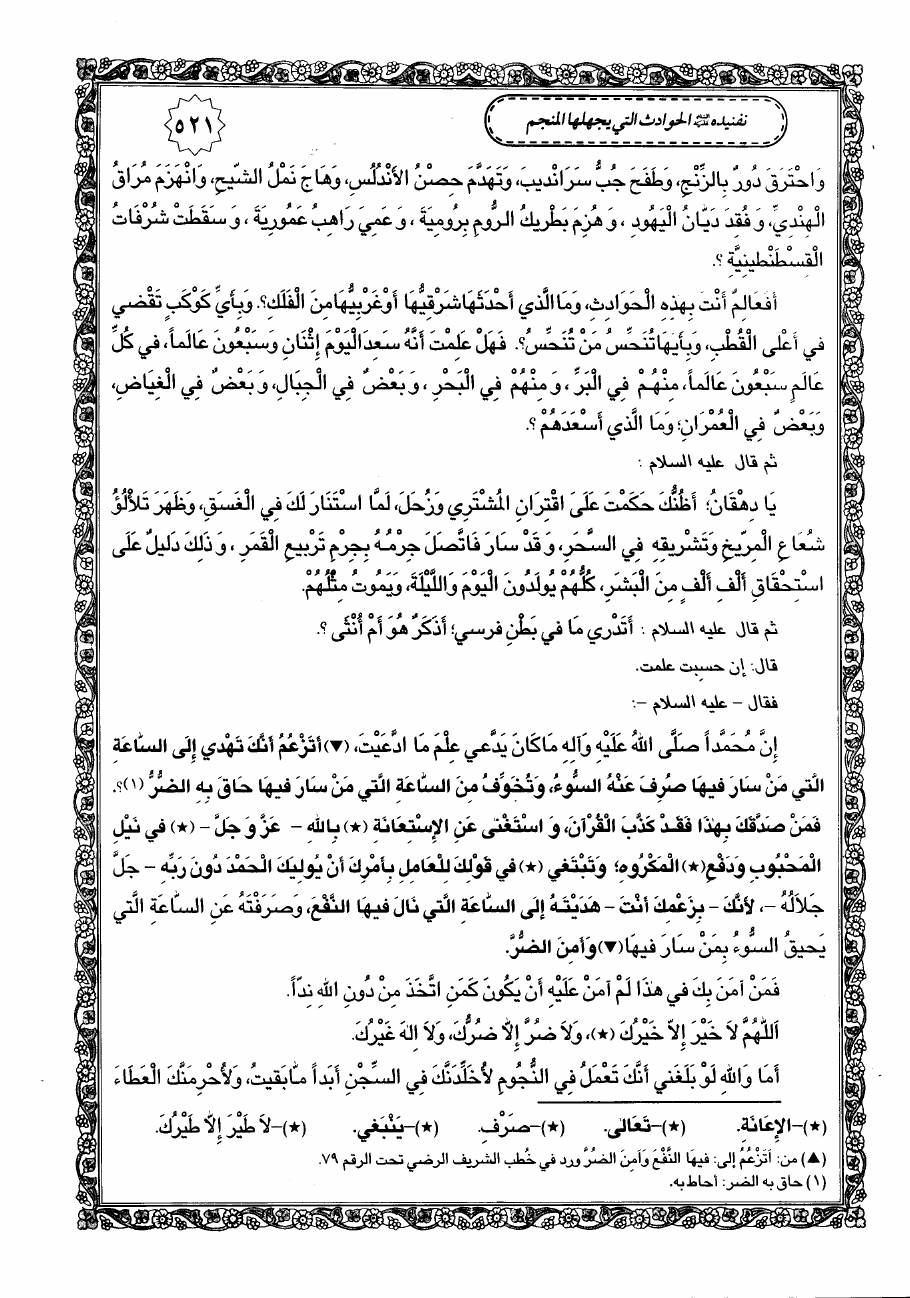 تفنيده ﷺ الحوادث التي يجهلها المنجم
٥٢١
وَاحْتَرَقَ دُورٌ بِالزِّنْجِ، وَطَفَحَ جُبُّ سَرَانْدِيبَ، وَتَهَدَّمَ حِصْنُ الأَنْدُلُسِ، وَهَاجَ نَمْلُ الشِّيحِ، وَانْهَزَمَ مُرَاقُ
الْهِنْدِيِّ، وَفُقِدَ دَيَّانُ الْيَهُودِ، وَهُزِمَ بَطْرِيكُ الرُّومِ بِرُومِيَةَ، وَعَمِيَ رَاهِبُ عَمُّورِيَةَ، وَسَقَطَتْ شُرُفَاتُ
الْقِسْطَنْطِينِيَّةِ؟.
أَفَعَالِمٌ أَنْتَ بِهذِهِ الْحَوَادِثِ، وَمَا الَّذي أَحْدَثَهَا شَرْقِيُّهَا أَوْ غَرْبِيُّهَا مِنَ الْفَلَكِ؟. وَبِأَيِّ كَوْكَبٍ تَقْضي
في أَعْلَى الْقُطْبِ، وَبِأَيِّهَا تُنَحِّسُ مَنْ تُنَحِّسُ؟. فَهَلْ عَلِمْتَ أَنَّهُ سَعِدَ الْيَوْمَ إِثْنَانِ وَسَبْعُونَ عَالَماً، في كُلِّ
عَالَمٍ سَبْعُونَ عَالَماً، مِنْهُمْ فِي الْبَرِّ، وَمِنْهُمْ فِي الْبَحْرِ، وَبَعْضٌ فِي الْجِبَالِ، وَبَعْضٌ فِي الْغِيَاضِ،
وَبَعْضٌ فِي الْعُمْرَانِ؛ وَمَا الَّذي أَسْعَدَهُمْ؟.
ثم قال عليه السلام :
يَا دِهْقَانُ؛ أَظُنُّكَ حَكَمْتَ عَلَى اقْتِرَانِ الْمُشْتَرِي وَزُحَلَ، لَمَّا اسْتَنَارَ لَكَ فِي الْغَسَقِ، وَظَهَرَ تَلَأْلُؤُ
شُعَاعِ الْمِرِّيخِ وَتَشْرِيقِهِ فِي السَّحَرِ، وَقَدْ سَارَ فَاتَّصَلَ جِرْمُهُ بِجِرْمِ تَرْبِيعِ الْقَمَرِ، وَذَلِكَ دَلِيلٌ عَلَى
اسْتِحْقَاقِ أَلْفِ أَلْفٍ مِنَ الْبَشَرِ، كُلُّهُمْ يُولَدُونَ الْيَوْمَ وَاللَّيْلَةَ، وَيَمُوتُ مِثْلُهُمْ.
ثم قال عليه السلام : أَتَدْرِي مَا في بَطْنِ فرسي؛ أَذَكَرٌ هُوَ أَمْ أُنْثَى؟.
قال: إن حسبت علمت.
فقال – عليه السلام –:
إِنَّ مُحَمَّداً صَلَّى اللهُ عَلَيْهِ وَآلِهِ مَا كَانَ يَدَّعي عِلْمَ مَا ادَّعَيْتَ، (▼) أَتَزْعُمُ أَنَّكَ تَهْدي إِلَى السَّاعَةِ
الَّتي مَنْ سَارَ فيهَا صُرِفَ عَنْهُ السُّوءُ، وَتُخَوِّفُ مِنَ السَّاعَةِ الَّتي مَنْ سَارَ فيهَا حَاقَ بِهِ الضُّرُّ (١)؟.
فَمَنْ صَدَّقَكَ بِهَذَا فَقَدْ كَذَّبَ الْقُرْآنَ، وَ اسْتَغْنَى عَنِ الإِسْتِعَانَةِ (★) بِاللهِ – عَزَّ وَ جَلَّ – (★) في نَيْلِ
الْمَحْبُوبِ وَدَفْعِ (★) الْمَكْرُوهِ؛ وَتَبْتَغي (★) في قَوْلِكَ لِلْعَامِلِ بِأَمْرِكَ أَنْ يُولِيَكَ الْحَمْدَ دُونَ رَبِّهِ – جَلَّ
جَلَالُهُ –، لأَنَّكَ – بِزَعْمِكَ أَنْتَ – هَدَيْتَهُ إِلَى السَّاعَةِ الَّتي نَالَ فيهَا النَّفْعَ، وَصَرَفْتَهُ عَنِ السَّاعَةِ الَّتي
يَحيقُ السُّوءُ بِمَنْ سَارَ فيهَا (▼) وَأَمِنَ الضُّرَّ.
فَمَنْ آمَنَ بِكَ في هذَا لَمْ آمَنْ عَلَيْهِ أَنْ يَكُونَ كَمَنِ اتَّخَذَ مِنْ دُونِ اللهِ نِدّاً.
اَللّهُمَّ لاَ خَيْرَ إِلاَّ خَيْرُكَ (★)، وَلاَ ضُرَّ إِلاَّ ضُرُّكَ، وَلاَ اِلهَ غَيْرُكَ.
أَمَا وَاللهِ لَوْ بَلَغَني أَنَّكَ تَعْمَلُ فِي النُّجُومِ لأُخَلِّدَنَّكَ فِي السِّجْنِ أَبَداً مَا بَقيتُ، وَلأُحْرِمَنَّكَ الْعَطَاءَ
(★)–الإِعَانَةِ. (★)–تَعَالَى. (★)–صَرْفِ. (★)–يَنْبَغي. (★)–لاَ طَيْرَ إِلاَّ طَيْرُكَ.
(▲) من: أَتَزْعُمُ إلى: فيهَا النَّفْعَ وَأَمِنَ الضُّرَّ ورد في خُطب الشريف الرضي تحت الرقم ٧٩.
(١) حاق به الضر: أحاط به.